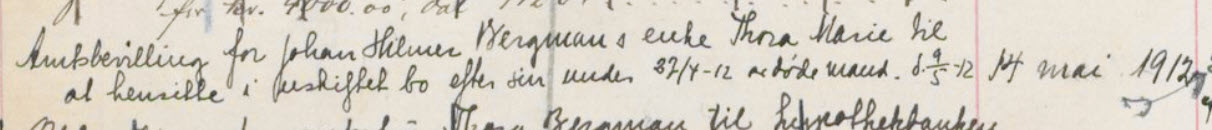 for kr. 4000.00, dat
Amtsbevilling for Johan Hilmer Bergmans enke Thora Marie til
at hensitte i uskiftet bo efter sin under 27/4-12 avdøde mand. d. 9/5-12 14 mai 1912
Thora Bergman til hypothekbanken